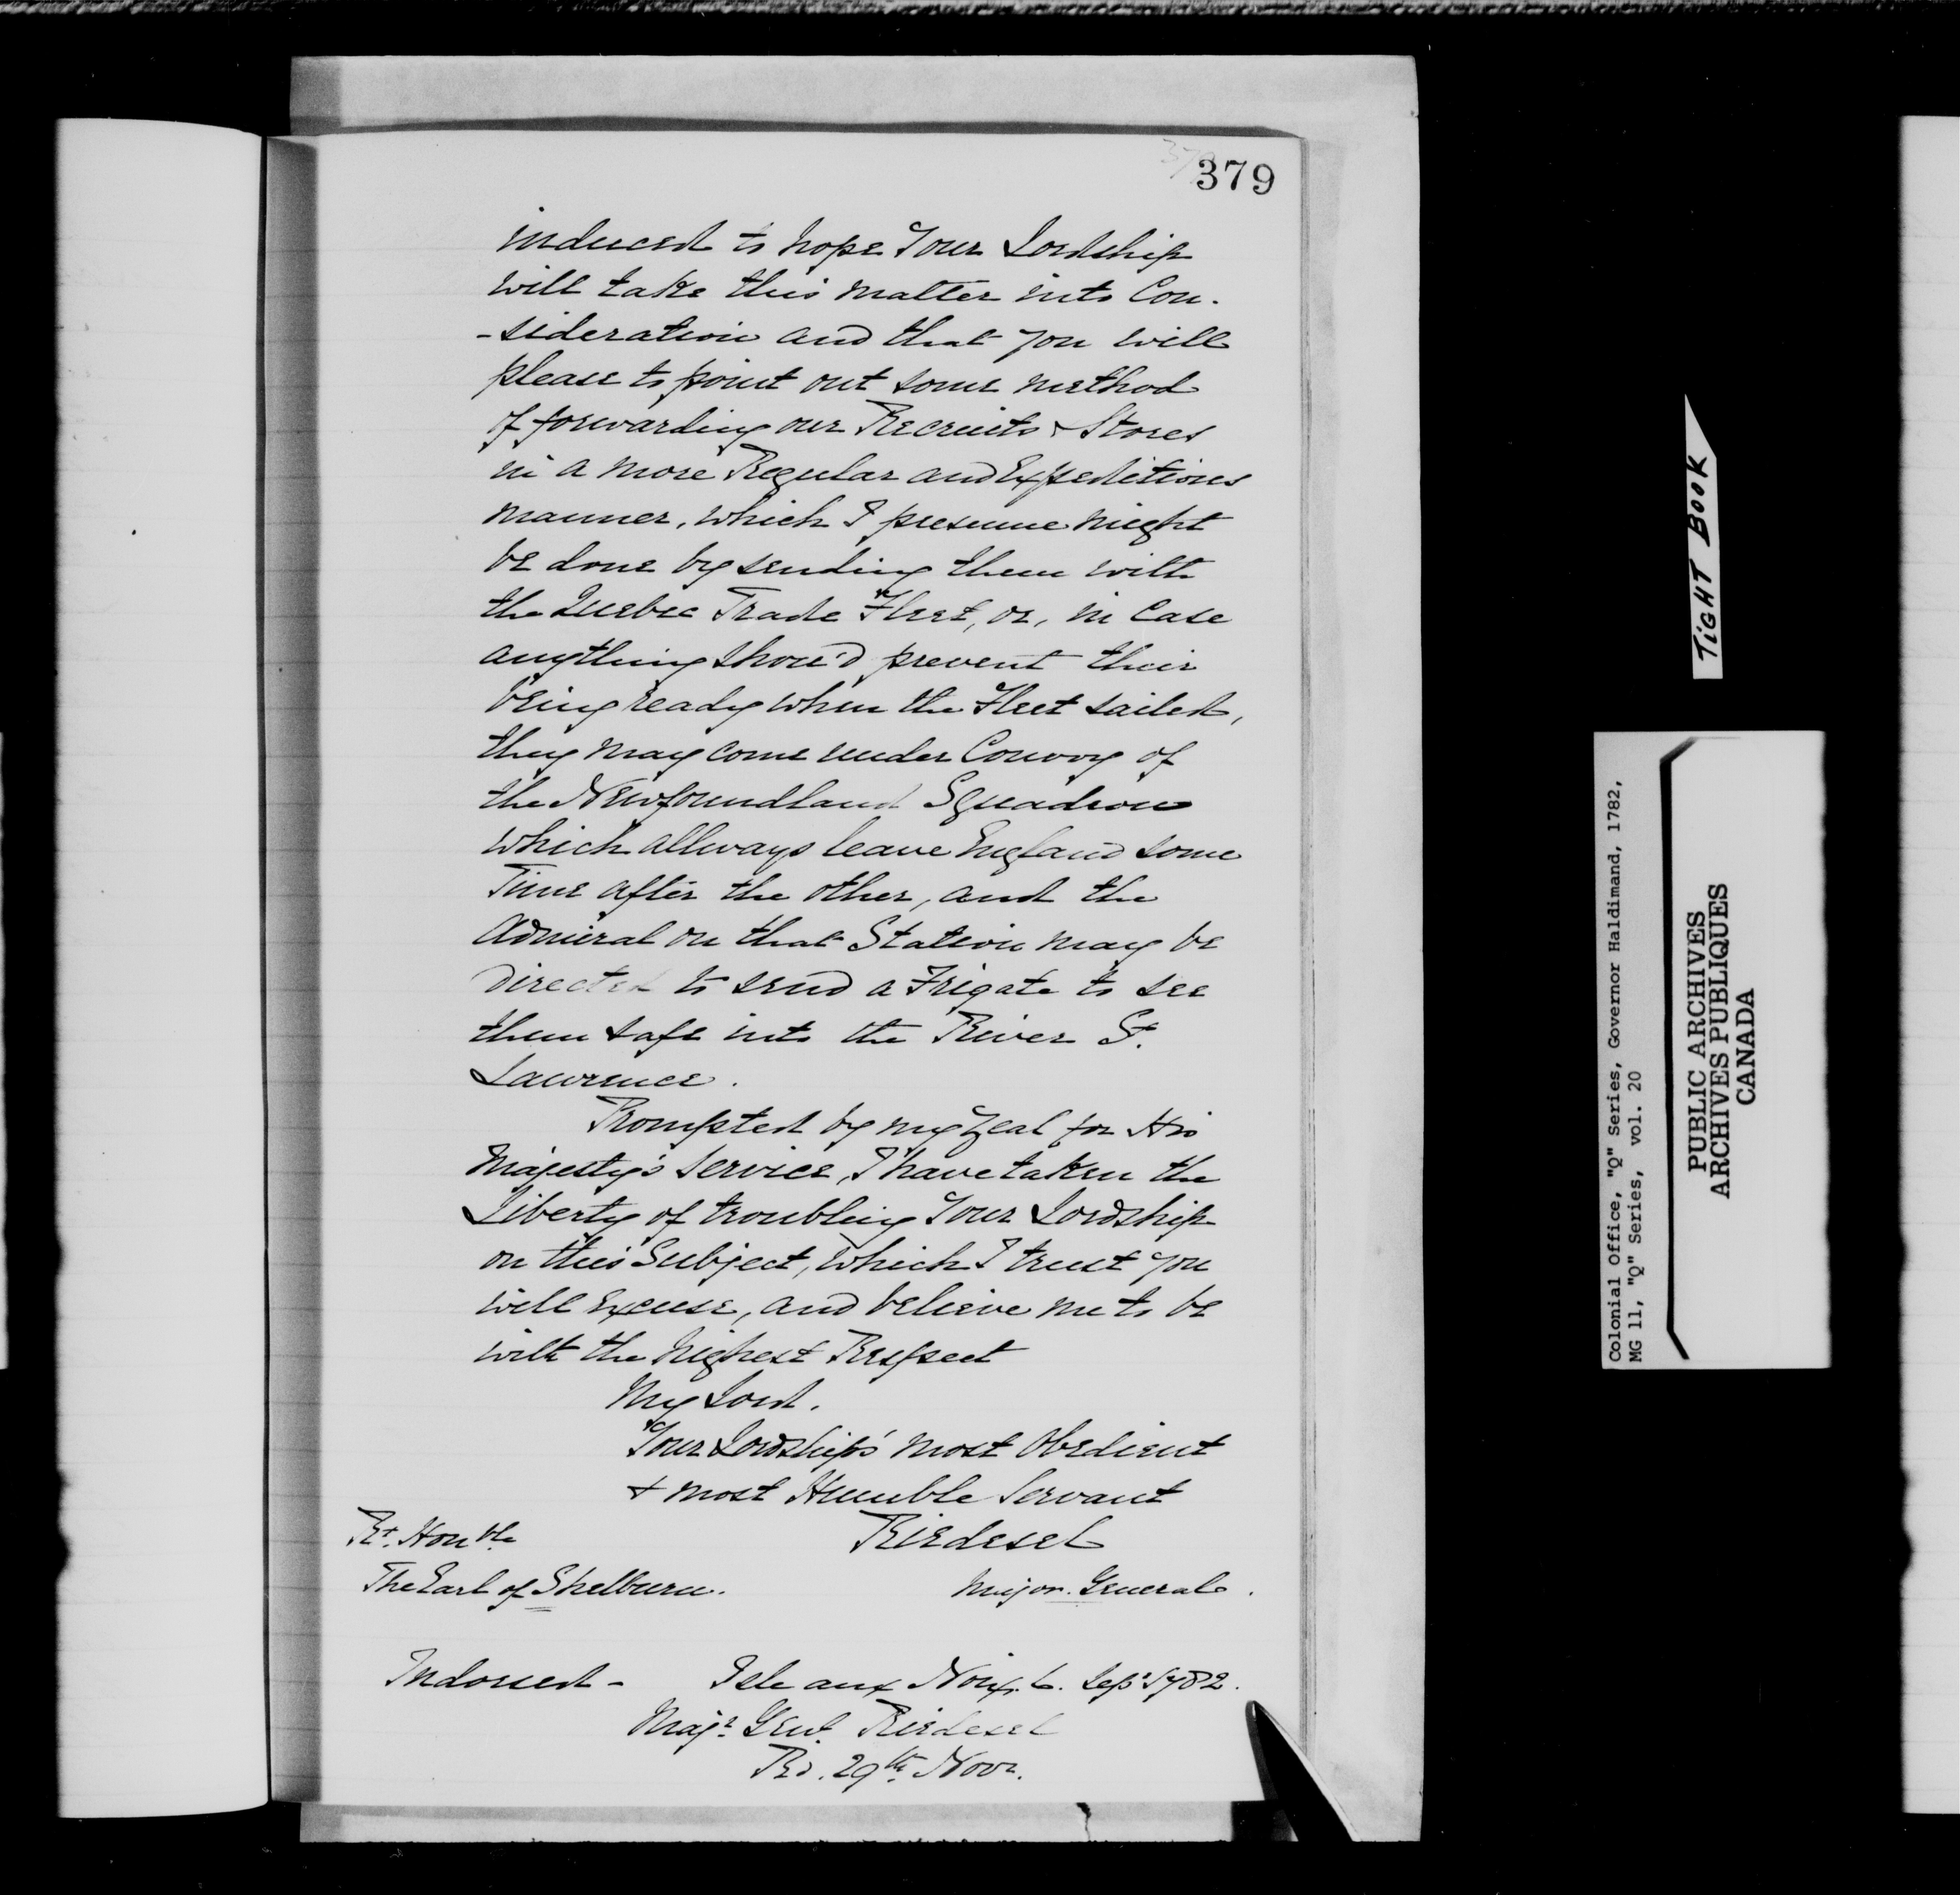 379
induced to hope Your Lordship
will take this matter into Con-
-sideration and that you will
please to point out some method
of forwarding our Recruits & Stores
in a more Regular and Expeditious
manner, which I presume might
be done by sending them with
the Quebec Trade Fleet, or, in Case
anything shou'd prevent their
being ready when the Fleet sailed,
they may come under Convoy of
the Newfoundland Squadron
which allways leave England some
Time after the other, and the
Admiral on that Station may be
Directed to send a Frigate to see
them safe into the River St.
Lawrence.
Prompted by my Zeal for His
Majesty's Service, I have taken the
Liberty of troubling Your Lordship
on this Subject, which I trust you
will Excuse, and believe me to be
with the highest Respect
My Lord.
Your Lordship's most Obedient
& most Humble Servant
Rt. Honble Riedesel
The Earl of Shelburn. Major. General.
Indorsed - Isle aux Noix. 6. Sepr 1782.
Majr. Genl. Riedesel
Rd. 29th Novr.
TIGHT BOOK
Colonial Office, "Q" Series, Governor Haldimand, 1782,
MG 11, "Q" Series, vol. 20
PUBLIC ARCHIVES
ARCHIVES PUBLIQUES
CANADA